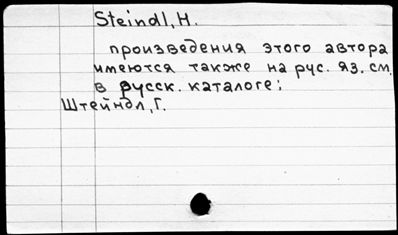 Steindl, H.
произведения этого автора
имеются также на рус. яз. см.
в русск. каталоге:
Штейндл, Г.